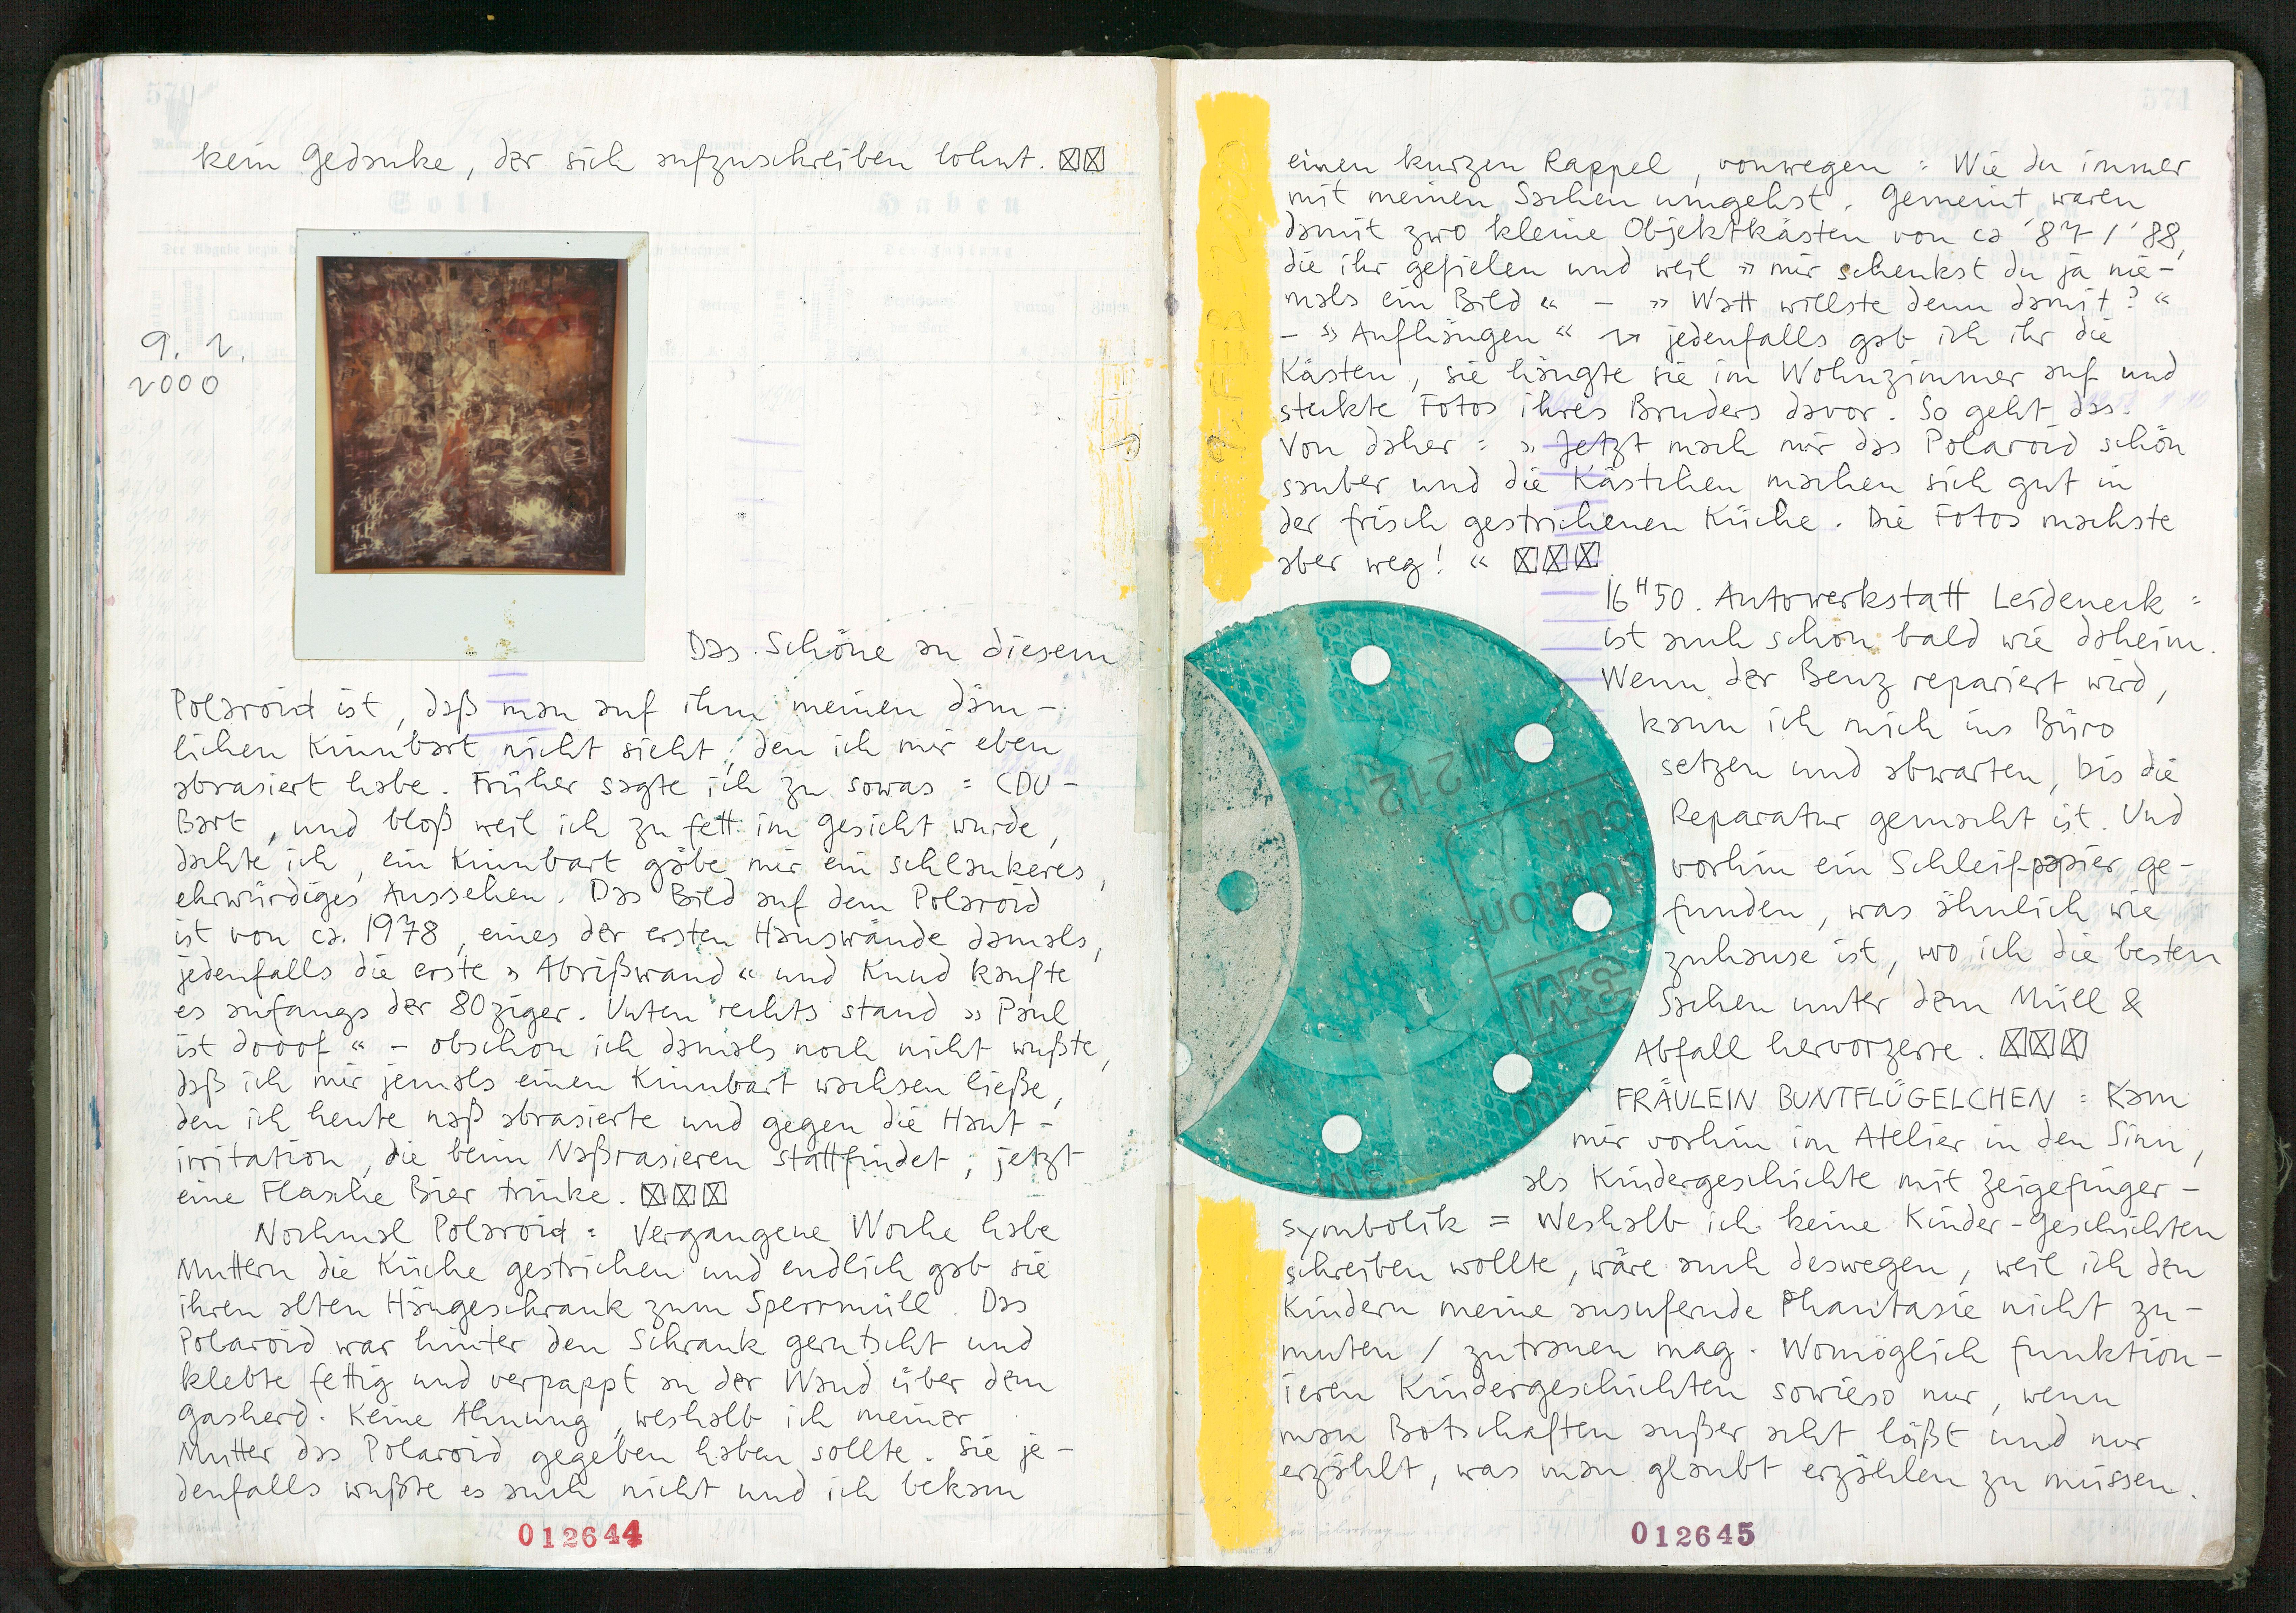 kein Gedanke, der sich aufzuschreiben lohnt. ☒☒
9. 2.
2000
Das Schöne an diesem
Polaroid ist, daß man auf ihm meinen däm-
lichen Kinnbart nicht sieht, den ich mir eben
abrasiert habe. Früher sagte ich zu sowas = CDU-
Bart, und bloß weil ich zu fett im Gesicht wurde,
dachte ich, ein Kinnbart gäbe mir ein schlankeres,
ehrwürdiges Aussehen. Das Bild auf dem Polaroid
ist von ca. 1978, eines der ersten Hauswände damals,
jedenfalls die erste »Abrißwand« und Knud kaufte
es anfangs der 80ziger. Unten rechts stand »Paul
ist dooof« - obschon ich damals noch nicht wußte,
daß ich mir jemals einen Kinnbart wachsen ließe,
den ich heute naß abrasierte und gegen die Haut-
irritation, die beim Naßrasieren stattfindet, jetzt
eine Flasche Bier trinke. ☒☒☒
Nochmal Polaroid = Vergangene Woche habe
Muttern die Küche gestrichen und endlich gab sie
ihren alten Hängeschrank zum Sperrmüll. Das
Polaroid war hinter den Schrank gerutscht und
klebte fettig und verpappt an der Wand über dem
Gasherd. Keine Ahnung, weshalb ich meiner
Mutter das Polaroid gegeben haben sollte. Sie je-
denfalls wußte es auch nicht und ich bekam
012644
571
9. FEB. 2000
einen kurzen Rappel, vonwegen = Wie du immer
mit meinen Sachen umgehst. Gemeint waren
damit zwo kleine Objektkästen von ca '87/'88,
die ihr gefielen und weil »mir schenkst du ja nie-
mals ein Bild« - »Watt willste denn damit?«
- »Aufhängen« jedenfalls gab ich ihr die
Kästen, sie hängte sie im Wohnzimmer auf und
steckte Fotos ihres Bruders davor. So geht das.
Von daher = »Jetzt mach mir das Polaroid schön
sauber und die Kästchen machen sich gut in
der frisch gestrichenen Küche. Die Fotos machste
aber weg!« ☒☒☒
16H50. Autowerkstatt Leideneck =
ist auch schon bald wie daheim.
Wenn der Benz repariert wird,
kann ich mich ins Büro
setzen und abwarten, bis die
Reparatur gemacht ist. Und
vorhin ein Schleifpapier ge-
funden, was ähnlich wie
zuhause ist, wo ich die besten
Sachen unter dem Müll &
Abfall hervorzerre. ☒☒☒
FRÄULEIN BUNTFLÜGELCHEN = Kam
mir vorhin im Atelier in den Sinn,
als Kindergeschichte mit Zeigefinger-
symbolik = Weshalb ich keine Kinder-Geschichten
schreiben wollte, wäre auch deswegen, weil ich den
Kindern meine ausufernde Phantasie nicht zu-
muten / zutrauen mag. Womöglich funktion-
ieren Kindergeschichten sowieso nur, wenn
man Botschaften außer acht läßt und nur
erzählt, was man glaubt erzählen zu müssen.
012645
3M